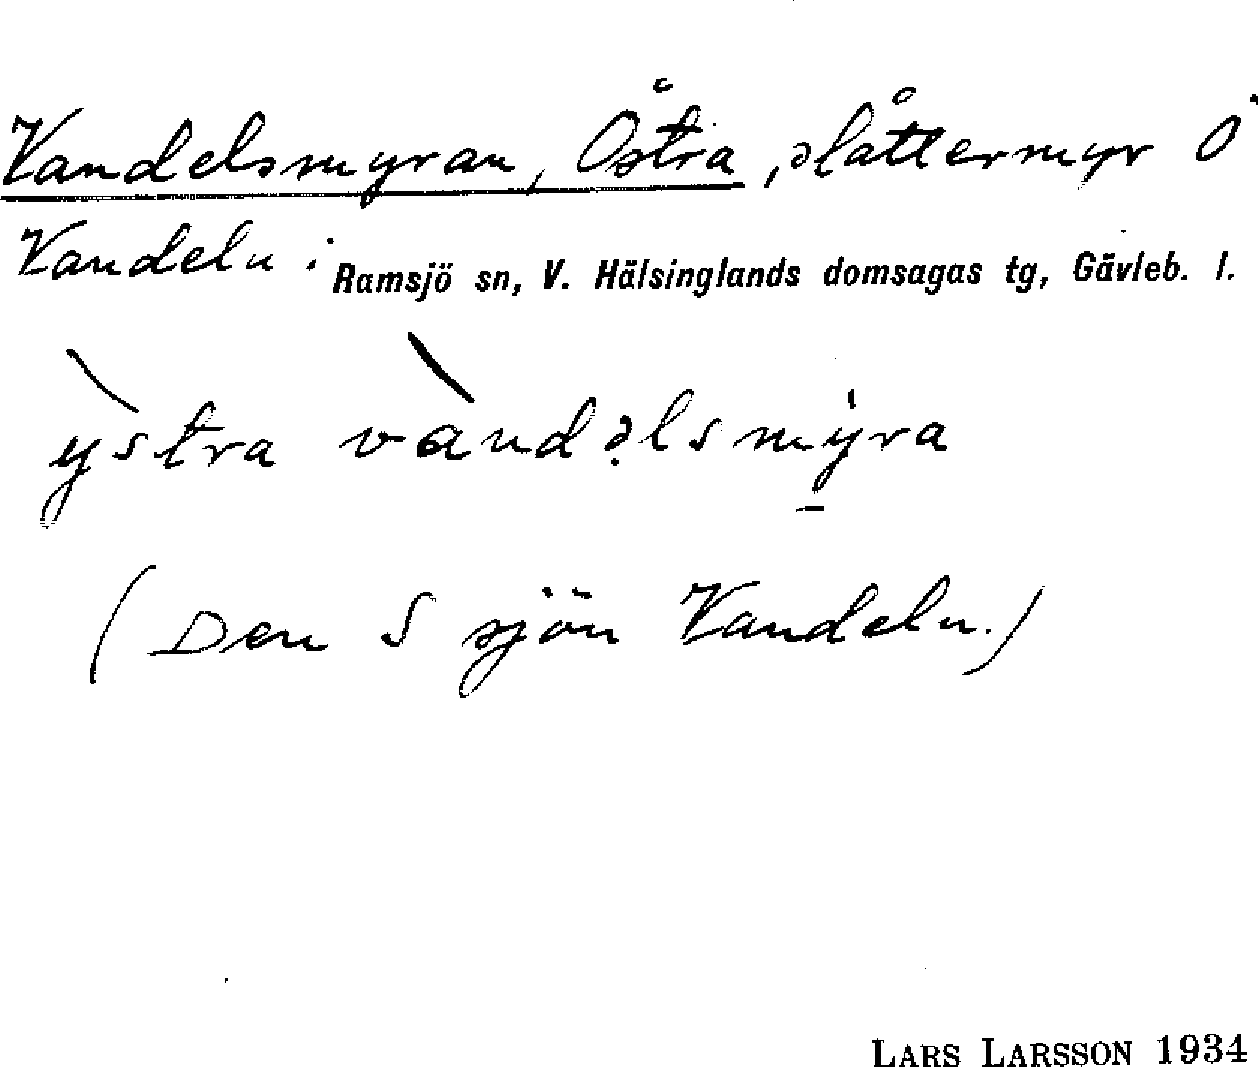 Vandelsmyran, Östra, slåttermyr Ö
Vandeln i Ramsjö sn, V. Hälsinglands domsagas tg, Gävleb. l.
ỳstra vàndəlsmy̠ra
(Den S sjön Vandeln.)
LARS LARSSON 1934